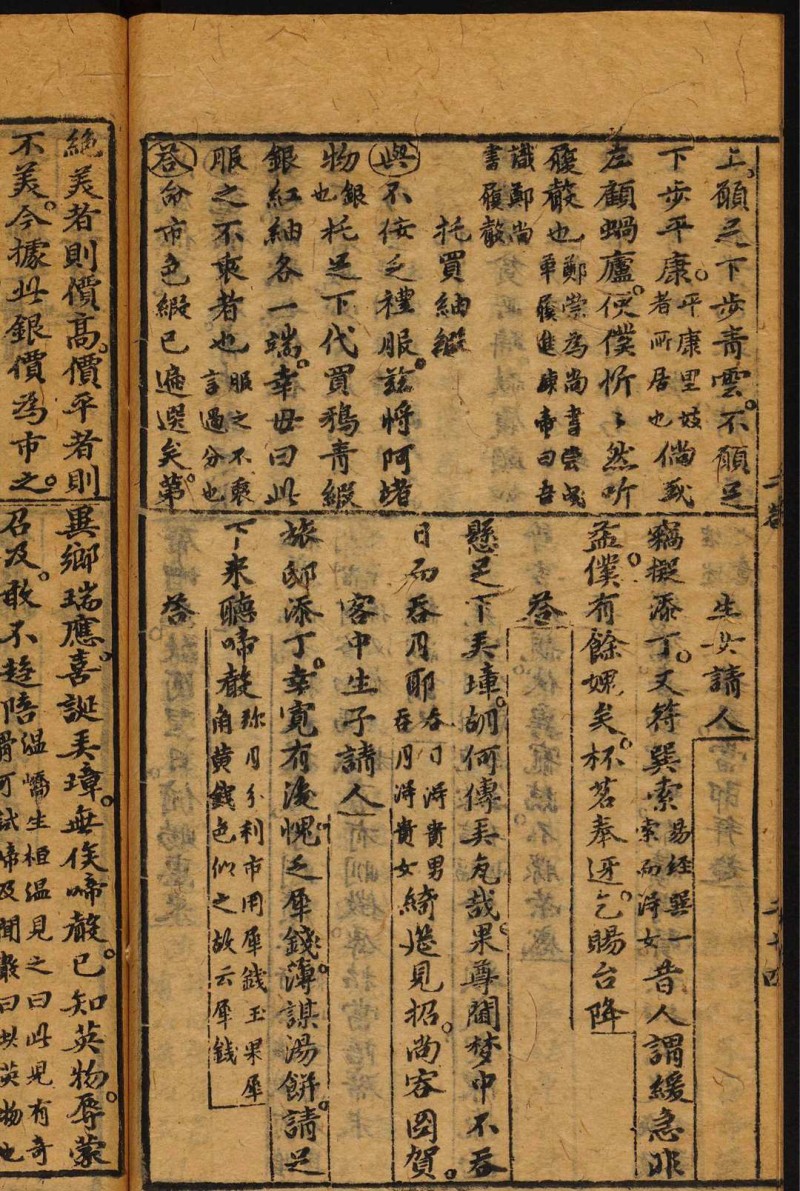 上願足下步青雲不願足
下步平康平康里妓者所居也倘或
左顧蝸廬便僕忻〻然听
履聲也鄭崇為尚書嘗曳革履進諫帝曰吾
識鄭尚書履聲
托買紬緞
與不佞乏禮服茲將阿堵
物銀也托足下代買鴉青緞
銀紅紬各一端幸毋曰此
服之不衷者也服之不衷言過分也
答命市色緞已遍選矣第
生女請人
竊擬添丁又符巽索易經巽一索而得女昔人謂緩急非
益僕有餘媿矣杯茗奉迓乞賜台降
答
懸足下弄璋胡何傳弄瓦哉果尊閫梦中不吞
日而吞月耶吞日得貴男吞月得貴女綺筵見招尚容図賀
客中生子請人
旅邸添丁幸寬有後愧乏犀錢薄謀湯餅請足
下来聽啼聲弥月分利市用犀錢玉果犀角黄錢色似之故云犀錢
答
絶美者則價高價平者則
不美今據此銀價為市之
異鄉瑞應喜誕弄璋無俟啼聲已知英物辱蒙
召及敢不趋陪温嶠生桓温見之曰此児有奇骨可試啼及聞聲曰英物也
二十四